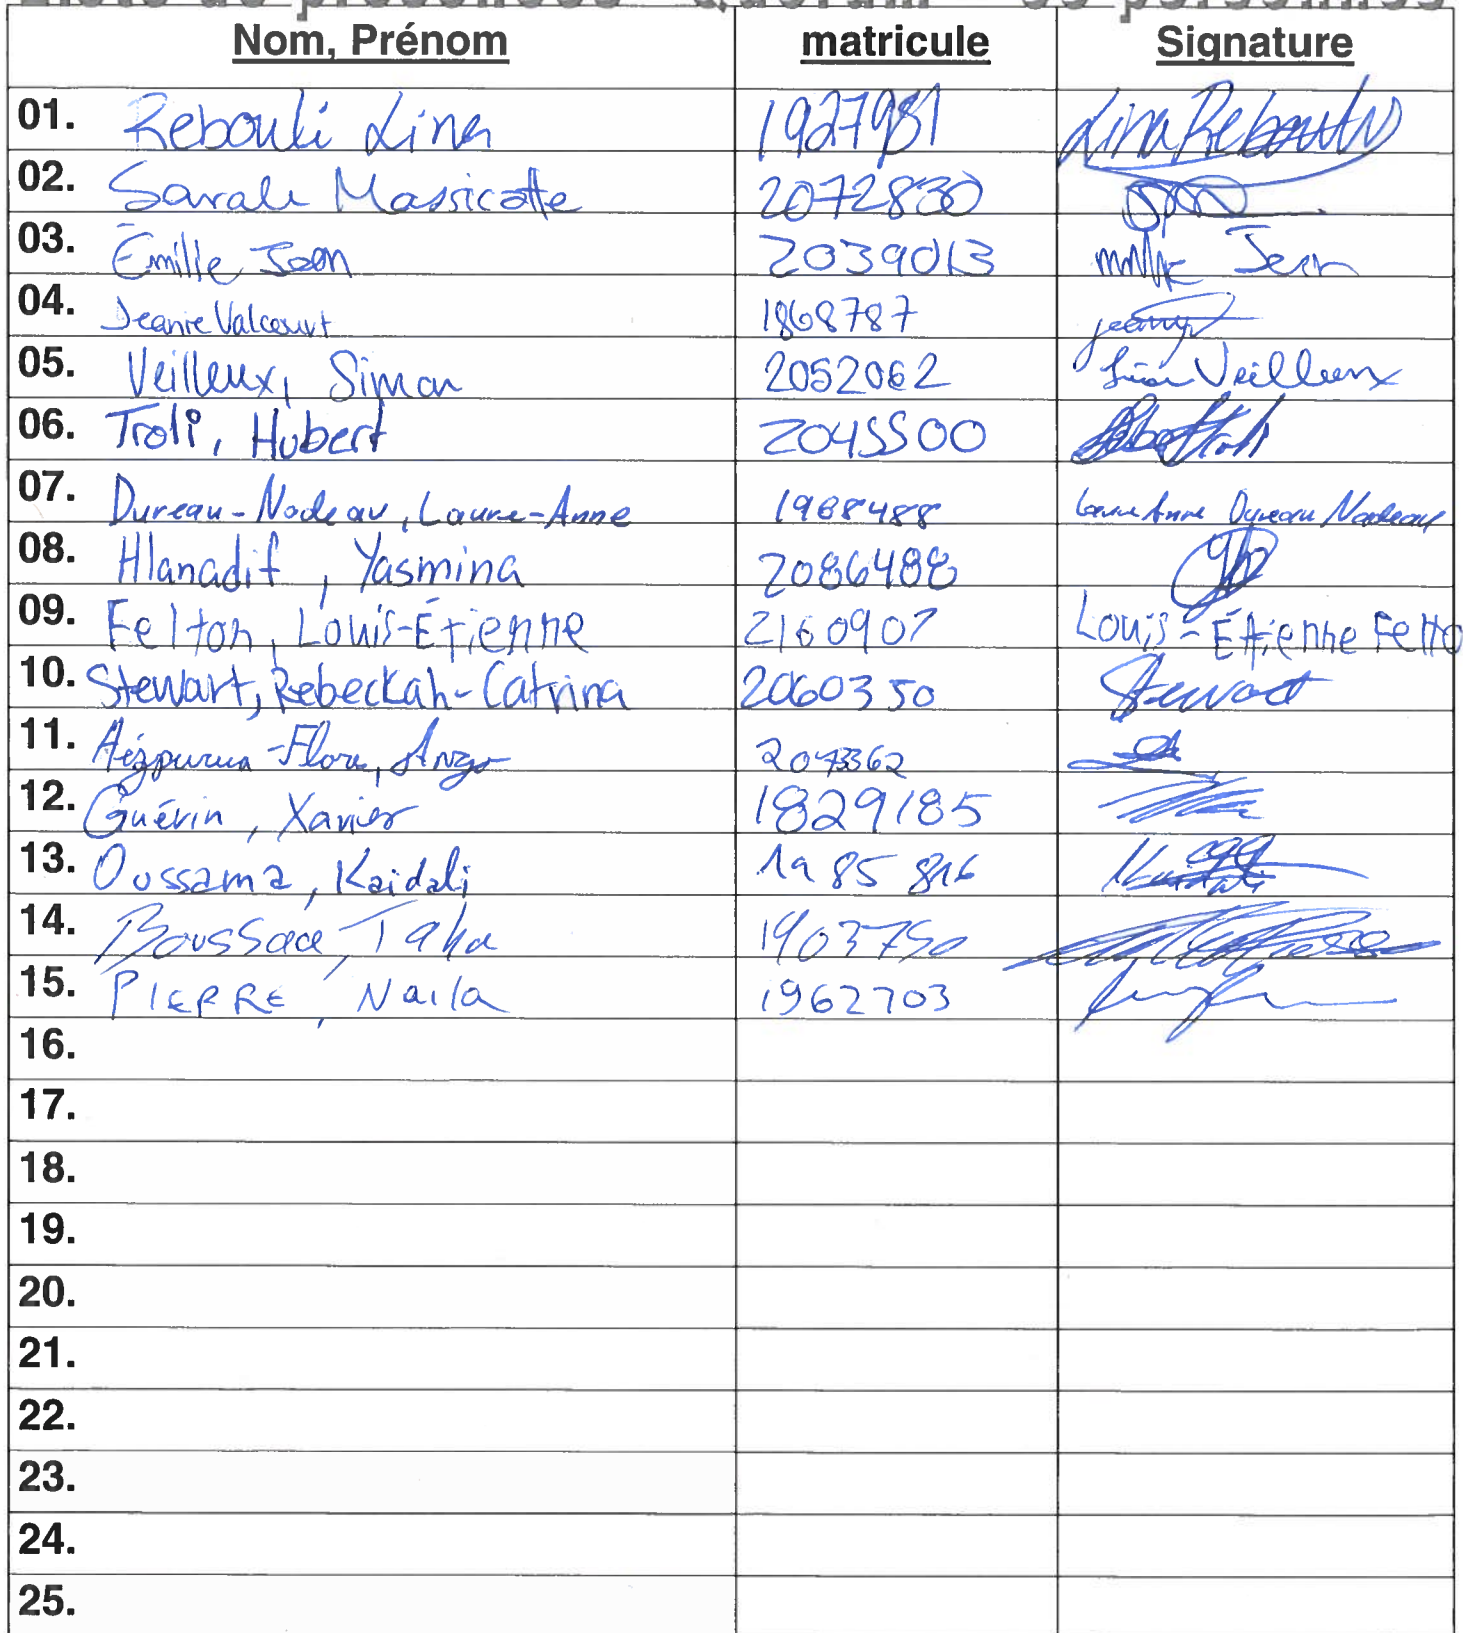 Nom, Prénom matricule Signature
01. Rebouli Lina 1927981 Lina Rebouli
02. Sarah Massicotte 2072830
03. Émilie Jean 2039013 Jean
04. Jeanie Valcourt 1868787
05. Veilleux, Simon 2052062 Veilleux
06. Troli, Hubert 2045500
07. Dureau-Nadeau, Laure-Anne 1988488 Laure Anne Dureau Nadeau
08. Hlanadif, Yasmina 2086488
09. Felton, Louis-Étienne 2160907 Louis-Étienne Felto
10. Stewart, Rebeckah-Catrina 2060350 Stewart
11. 
12. Guérin, Xavier 1829185
13. Oussama, Kaidali 1985816
14. Taha
15. PIERRE, Naila 1962703
16.
17.
18.
19.
20.
21.
22.
23.
24.
25.